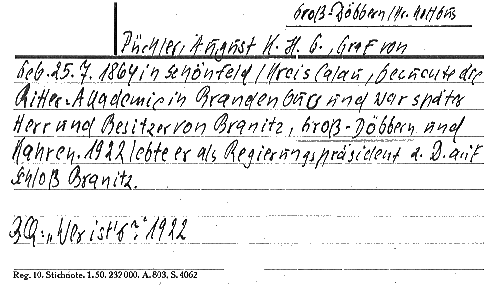 Groß-Döbbern/Kr. Kottbus
Pückler, August K. H. G., Graf von
Geb. 25. 7. 1864 in Schönfeld/Kreis Calau, besuchte die
Ritter-Akademie in Brandenburg und war später
Herr und Besitzer von Branitz, Groß-Döbbern und
Kahren. 1922 lebte er als Regierungspräsident a. D. auf
Schloß Branitz.
BQ: „Wer ist's?" 1922
Reg. 10. Stichnote. 1. 50. 232000. A. 803, S. 4062